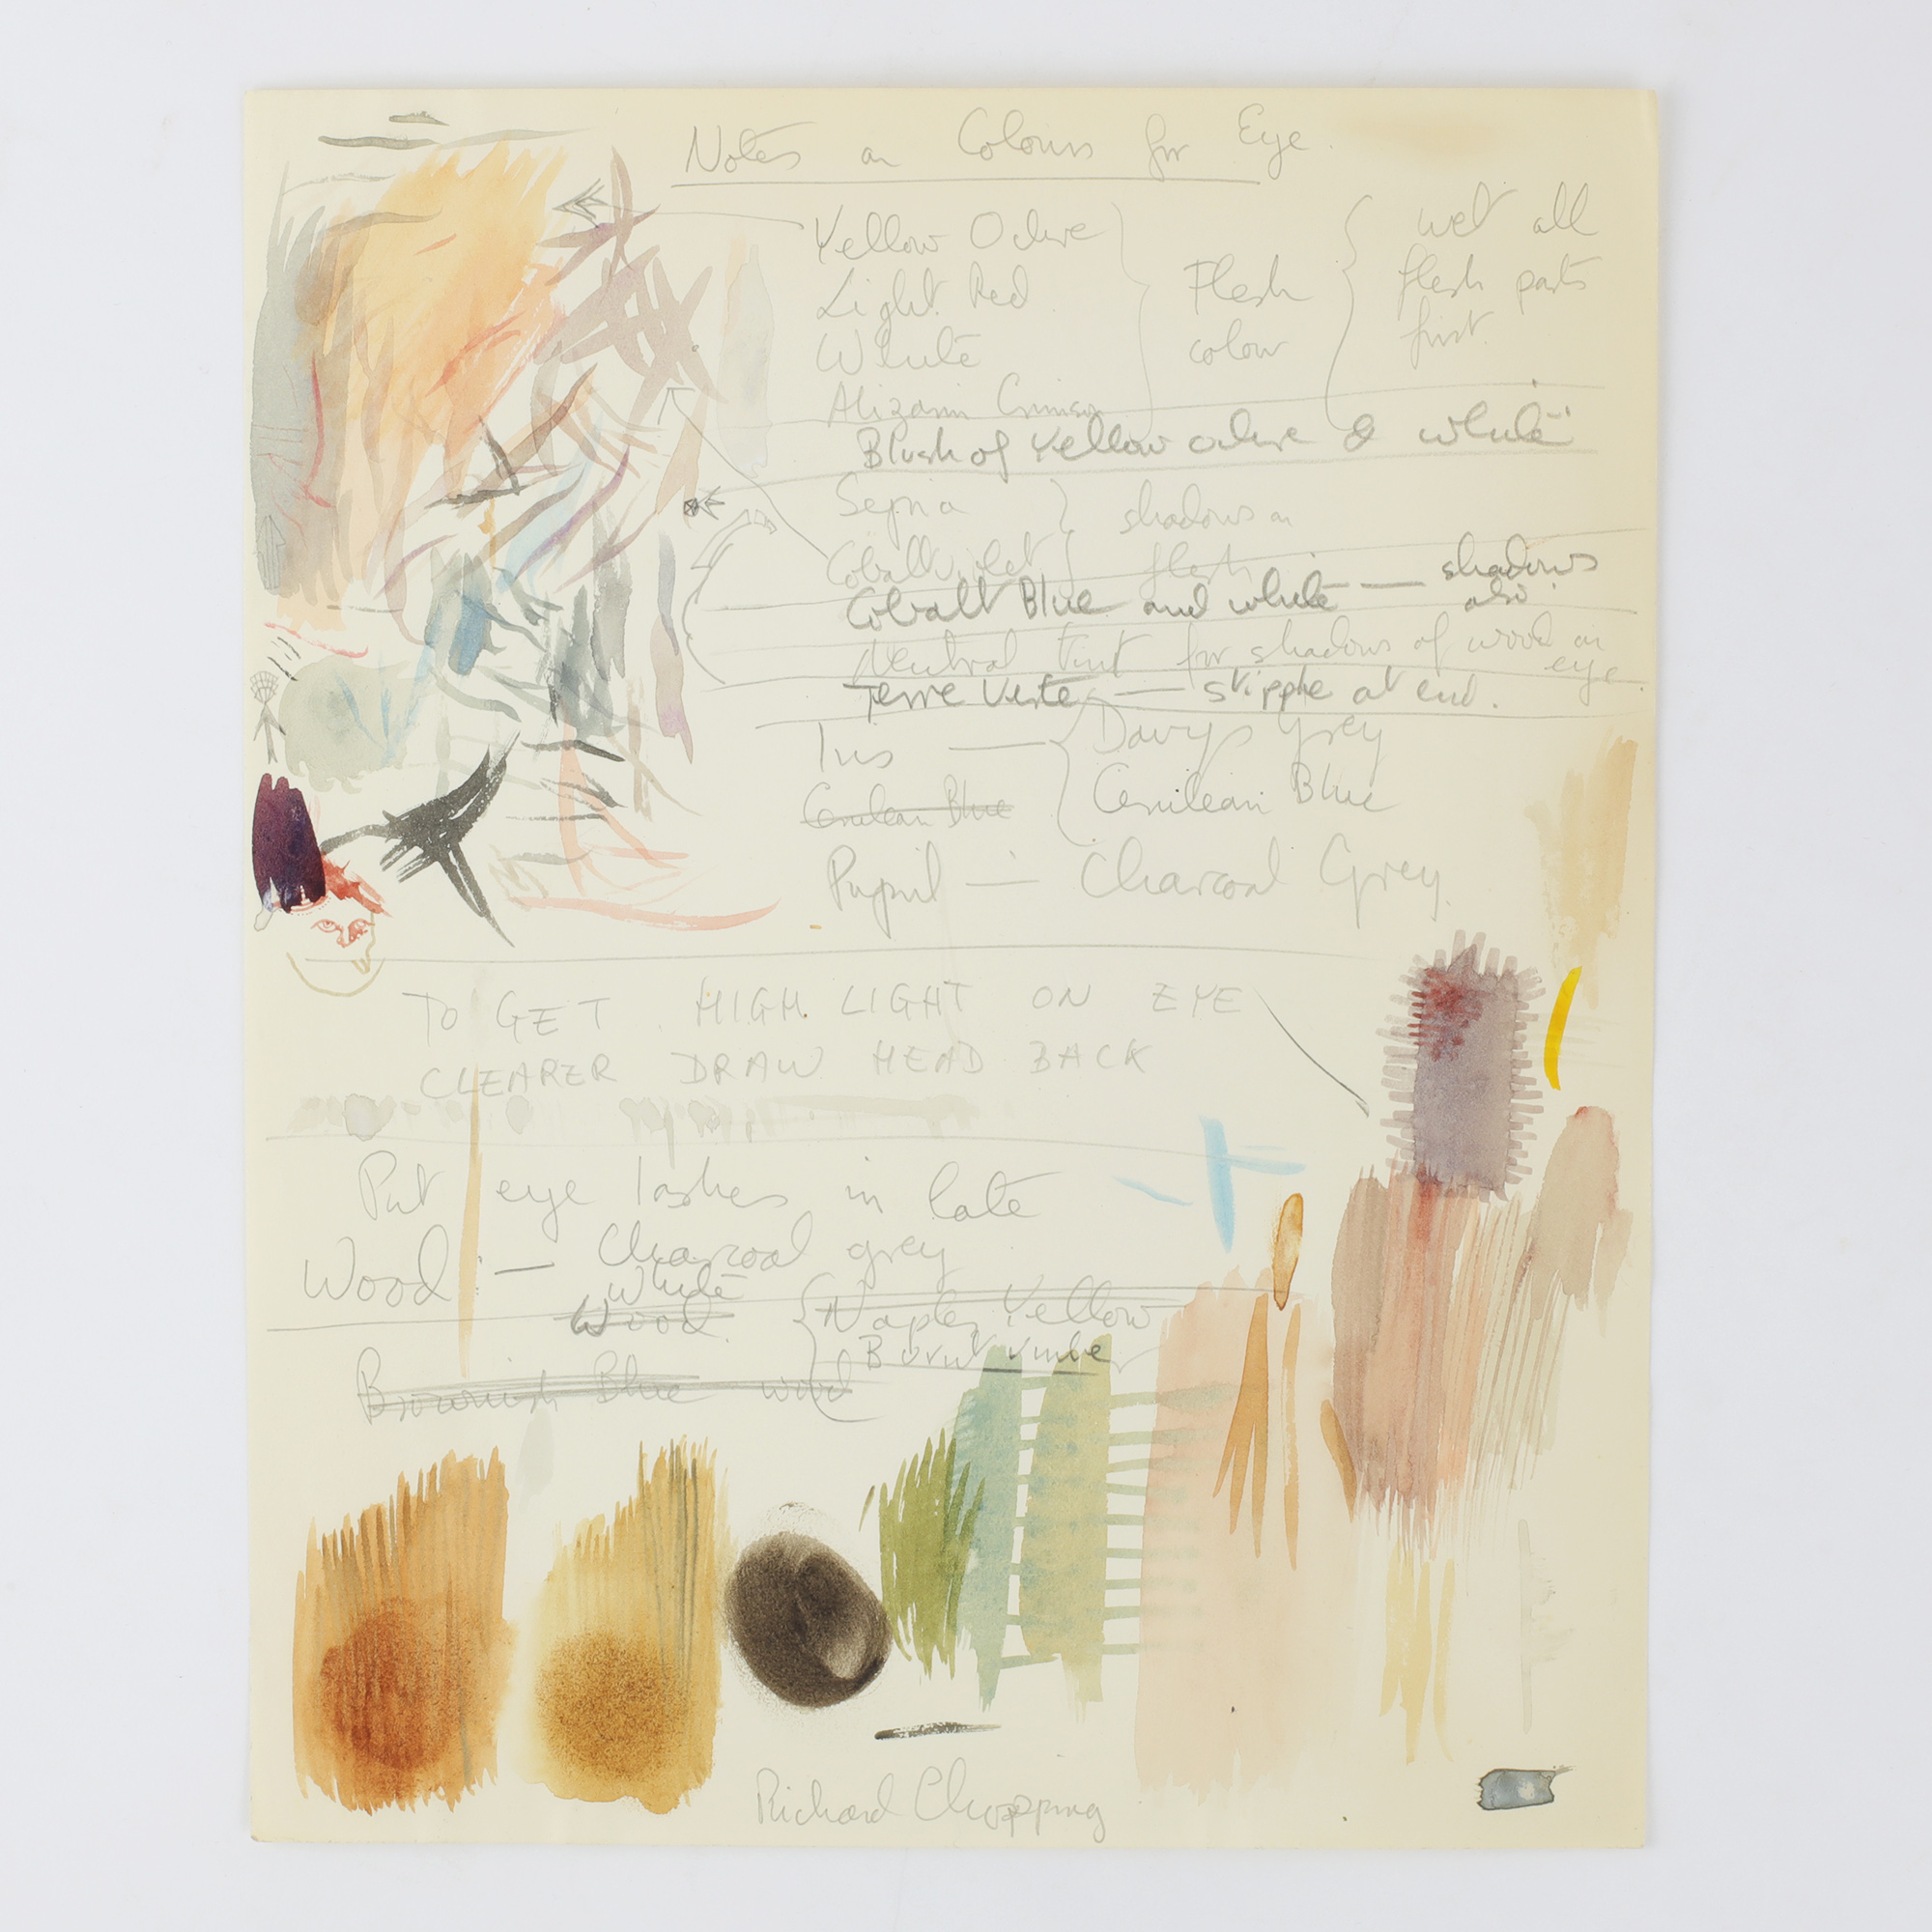 Notes on Colours for Eye
Yellow Ochre
Light Red
White
Alizarin Crimson
Flesh
colour
wet all
flesh parts
first.
Blush of Yellow ochre & white
Sepia
Cobalt violet
shadows on
flesh
Cobalt Blue and white — shadows
also
Neutral tint for shadows of wood on
eye.
Terre Verte — stipple at end.
Iris — Davy's Grey
Cerulean Blue
Cerulean Blue
Pupil — Charcoal Grey.
TO GET HIGH LIGHT ON EYE
CLEARER DRAW HEAD BACK
Put eye lashes in late
Wood : — Charcoal grey
White
Wood.
Naples Yellow
Burnt umber
Brownish Blue wood
Richard Chopping